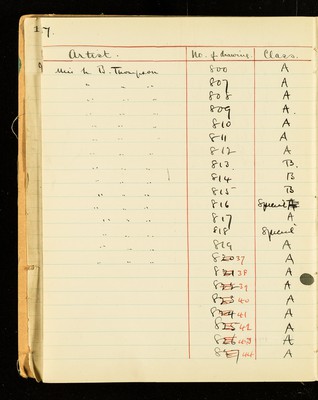 17.
Artist. No. of drawing Class.
Miss M B. Thompson 800 A
" " " 807 A
" " " 808 A
" " " 809 A
" " " 810 A
" " " 811 A
" " " 812 A
" " " 813 B.
" " " 814 B
" " " 815 B
" " " 816 Special A
" " " 817 A
" " " 818 Special
" " " 819 A
820 37 A
821 38 A
822 39 A
823 40 A
824 41 A
825 42 A
826 43 A
827 44 A